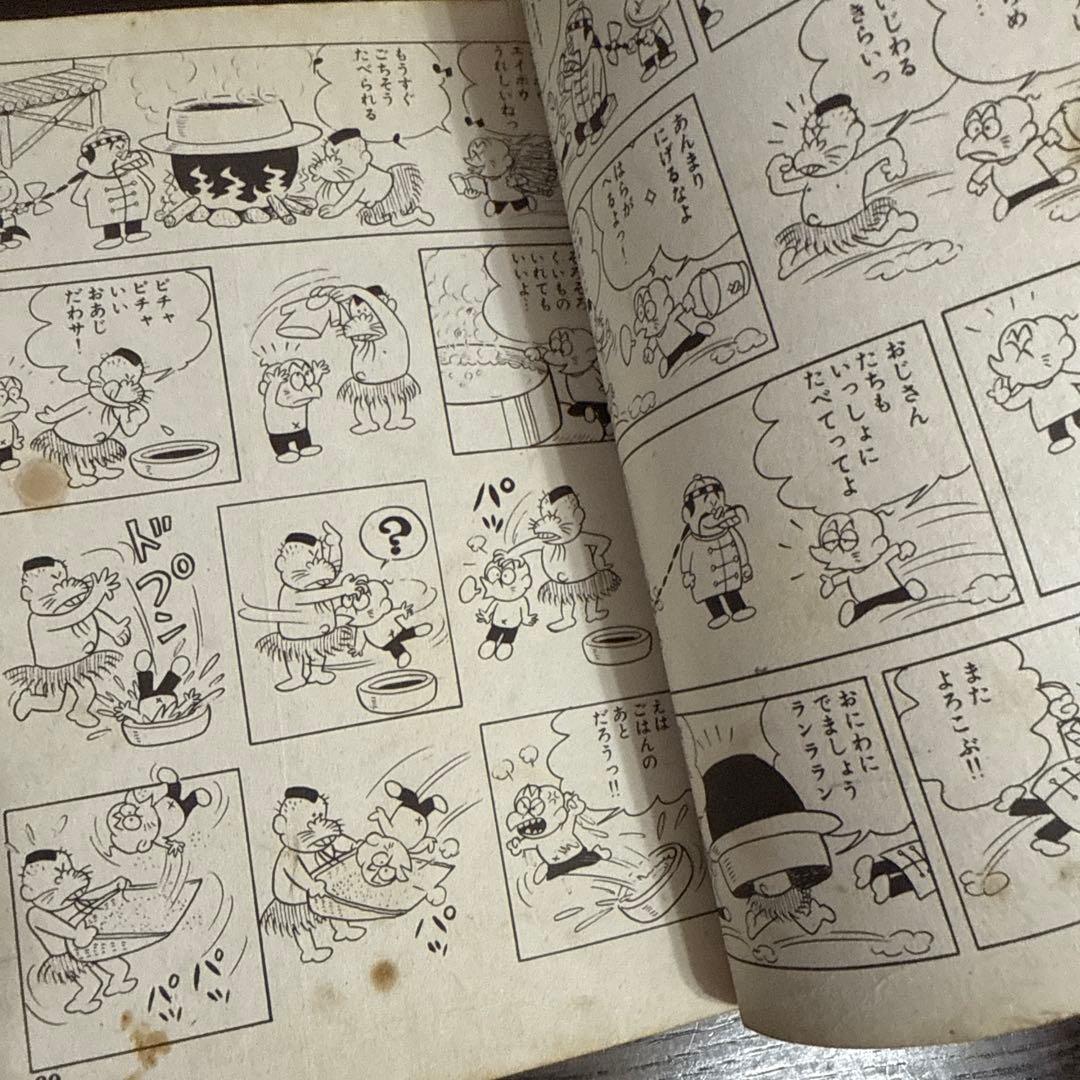 もうすぐ
ごちそう
たべられる
エイホウ
うれしいねっ
ピチャ
ピチャ
いい
おあじ
だわサ!
くいもの
いれても
いいよ…
パッ
?
ドブン
えは
ごはんの
あと
だろうっ!!
パッ
パッ
パッ
いじわる
きらいっ
あんまり
にげるなよ
はらが
へるよっ!
おじさん
たちも
いっしょに
たべてってよ
また
よろこぶ!!
おにわに
でましょう
ランララン